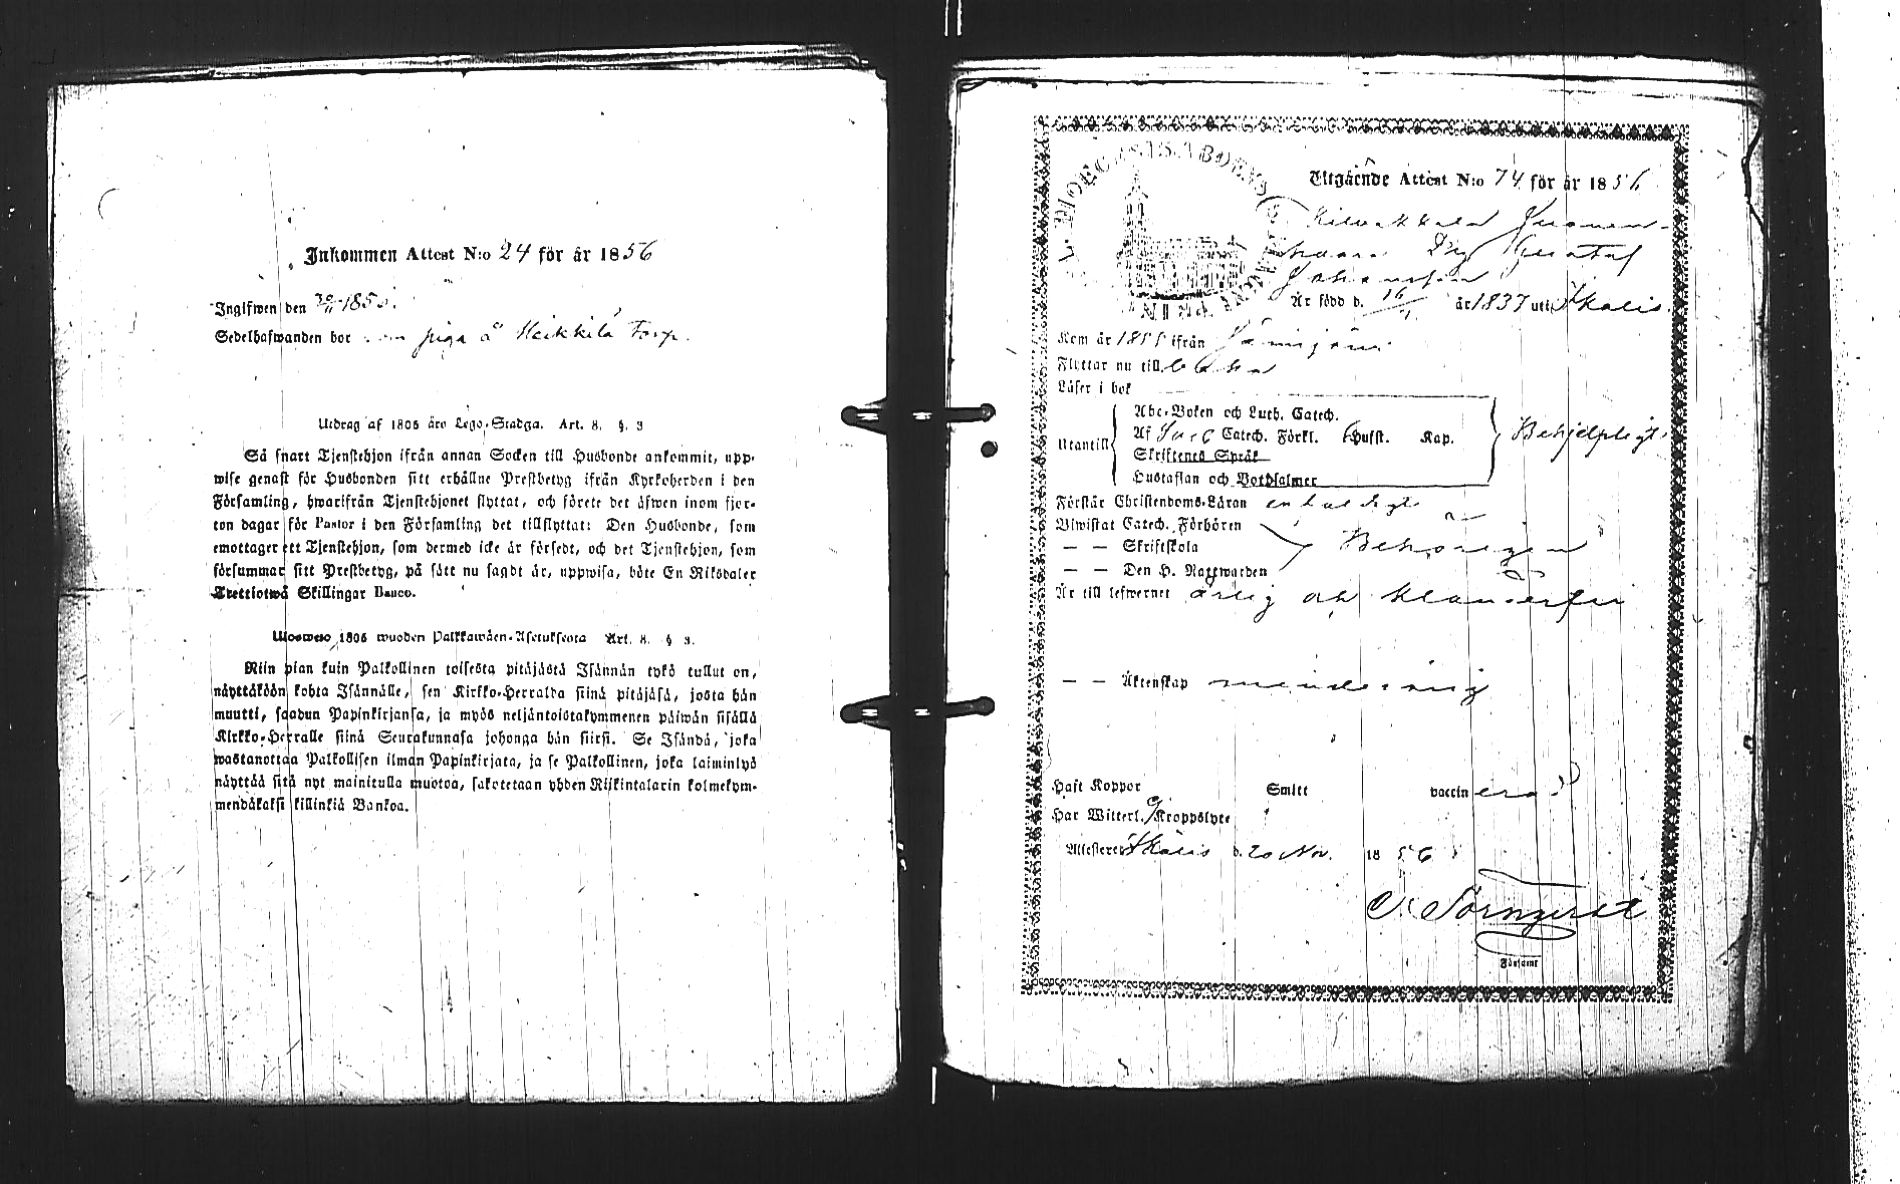 Inkommen Attest N:o 24 för år 1856
Ingifwen den 30/11 185
Sedelhafwanden bor som piga å Heikkilä Torp.
Utdrag af 1805 års Lego-Stadga. Art. 8. §. 3
Så snart Tjenstehjon ifrån annan Socken till Husbonde ankommit, upp-
wise genast för Husbonden sitt erhållne Prestbetyg ifrån Kyrkoherden i den
Församling, hwarifrån Tjenstehjonet flyttat, och förete det äfwen inom fjor-
ton dagar för Pastor i den Församling det tillflyttat: Den Husbonde, som
emottager ett Tjenstehjon, som dermed icke är försedt, och det Tjenstehjon, som
försummar sitt Prestbetyg, på sätt nu sagdt är, uppwisa, böte En Riksdaler
Trettiotwå Skillingar Banco.
1805 wuoden Palkkawäen-Asetuksesta Art. 8. § 3.
Niin pian kuin Palkollinen toisesta pitäjästä Isännän tykö tullut on,
näyttäköön kohta Isännälle, sen Kirkko-Herralda siinä pitäjäsä, josta hän
muutti, saadun Papinkirjansa, ja myös neljäntoistakymmenen päiwän sisällä
Kirkko-Herralle siinä Seurakunnasa johonga hän siirsi. Se Isändä, joka
wastanottaa Palkollisen ilman Papinkirjata, ja se Palkollinen, joka laiminlyö
näyttää sitä nyt mainitulla muotoa, sakotetaan yhden Riikintalarin kolmekym-
mendäkaksi killinkiä Bankoa.
Utgående Attest N:o 74 för år 1856
Gustaf
Johansson
Är född d. 16/ år 1837 uti Ikalis
Kom år 1855 ifrån Jämijärvi
Flyttar nu till
Läser i bok
Utantill
Abc-Boken och Luth. Catech.
Af Catech. Förkl. Husst. Kap.
Skriftenes Språk
Hustaflan och Botpsalmer
Behjelpligt
Förstår Christendoms-Läran enhaldigt
Biwistat Catech. Förhören
— — Skriftskola
— — Den H. Nattwarden
Behörigen
Är till lefwernet ärlig och
— — Äktenskap minderårig
Haft Koppor Smitt vaccinerad
Har Witterl. Kroppslyte
Attesterer Ikalis d. 20 Nov. 1856
C. Törnqvist